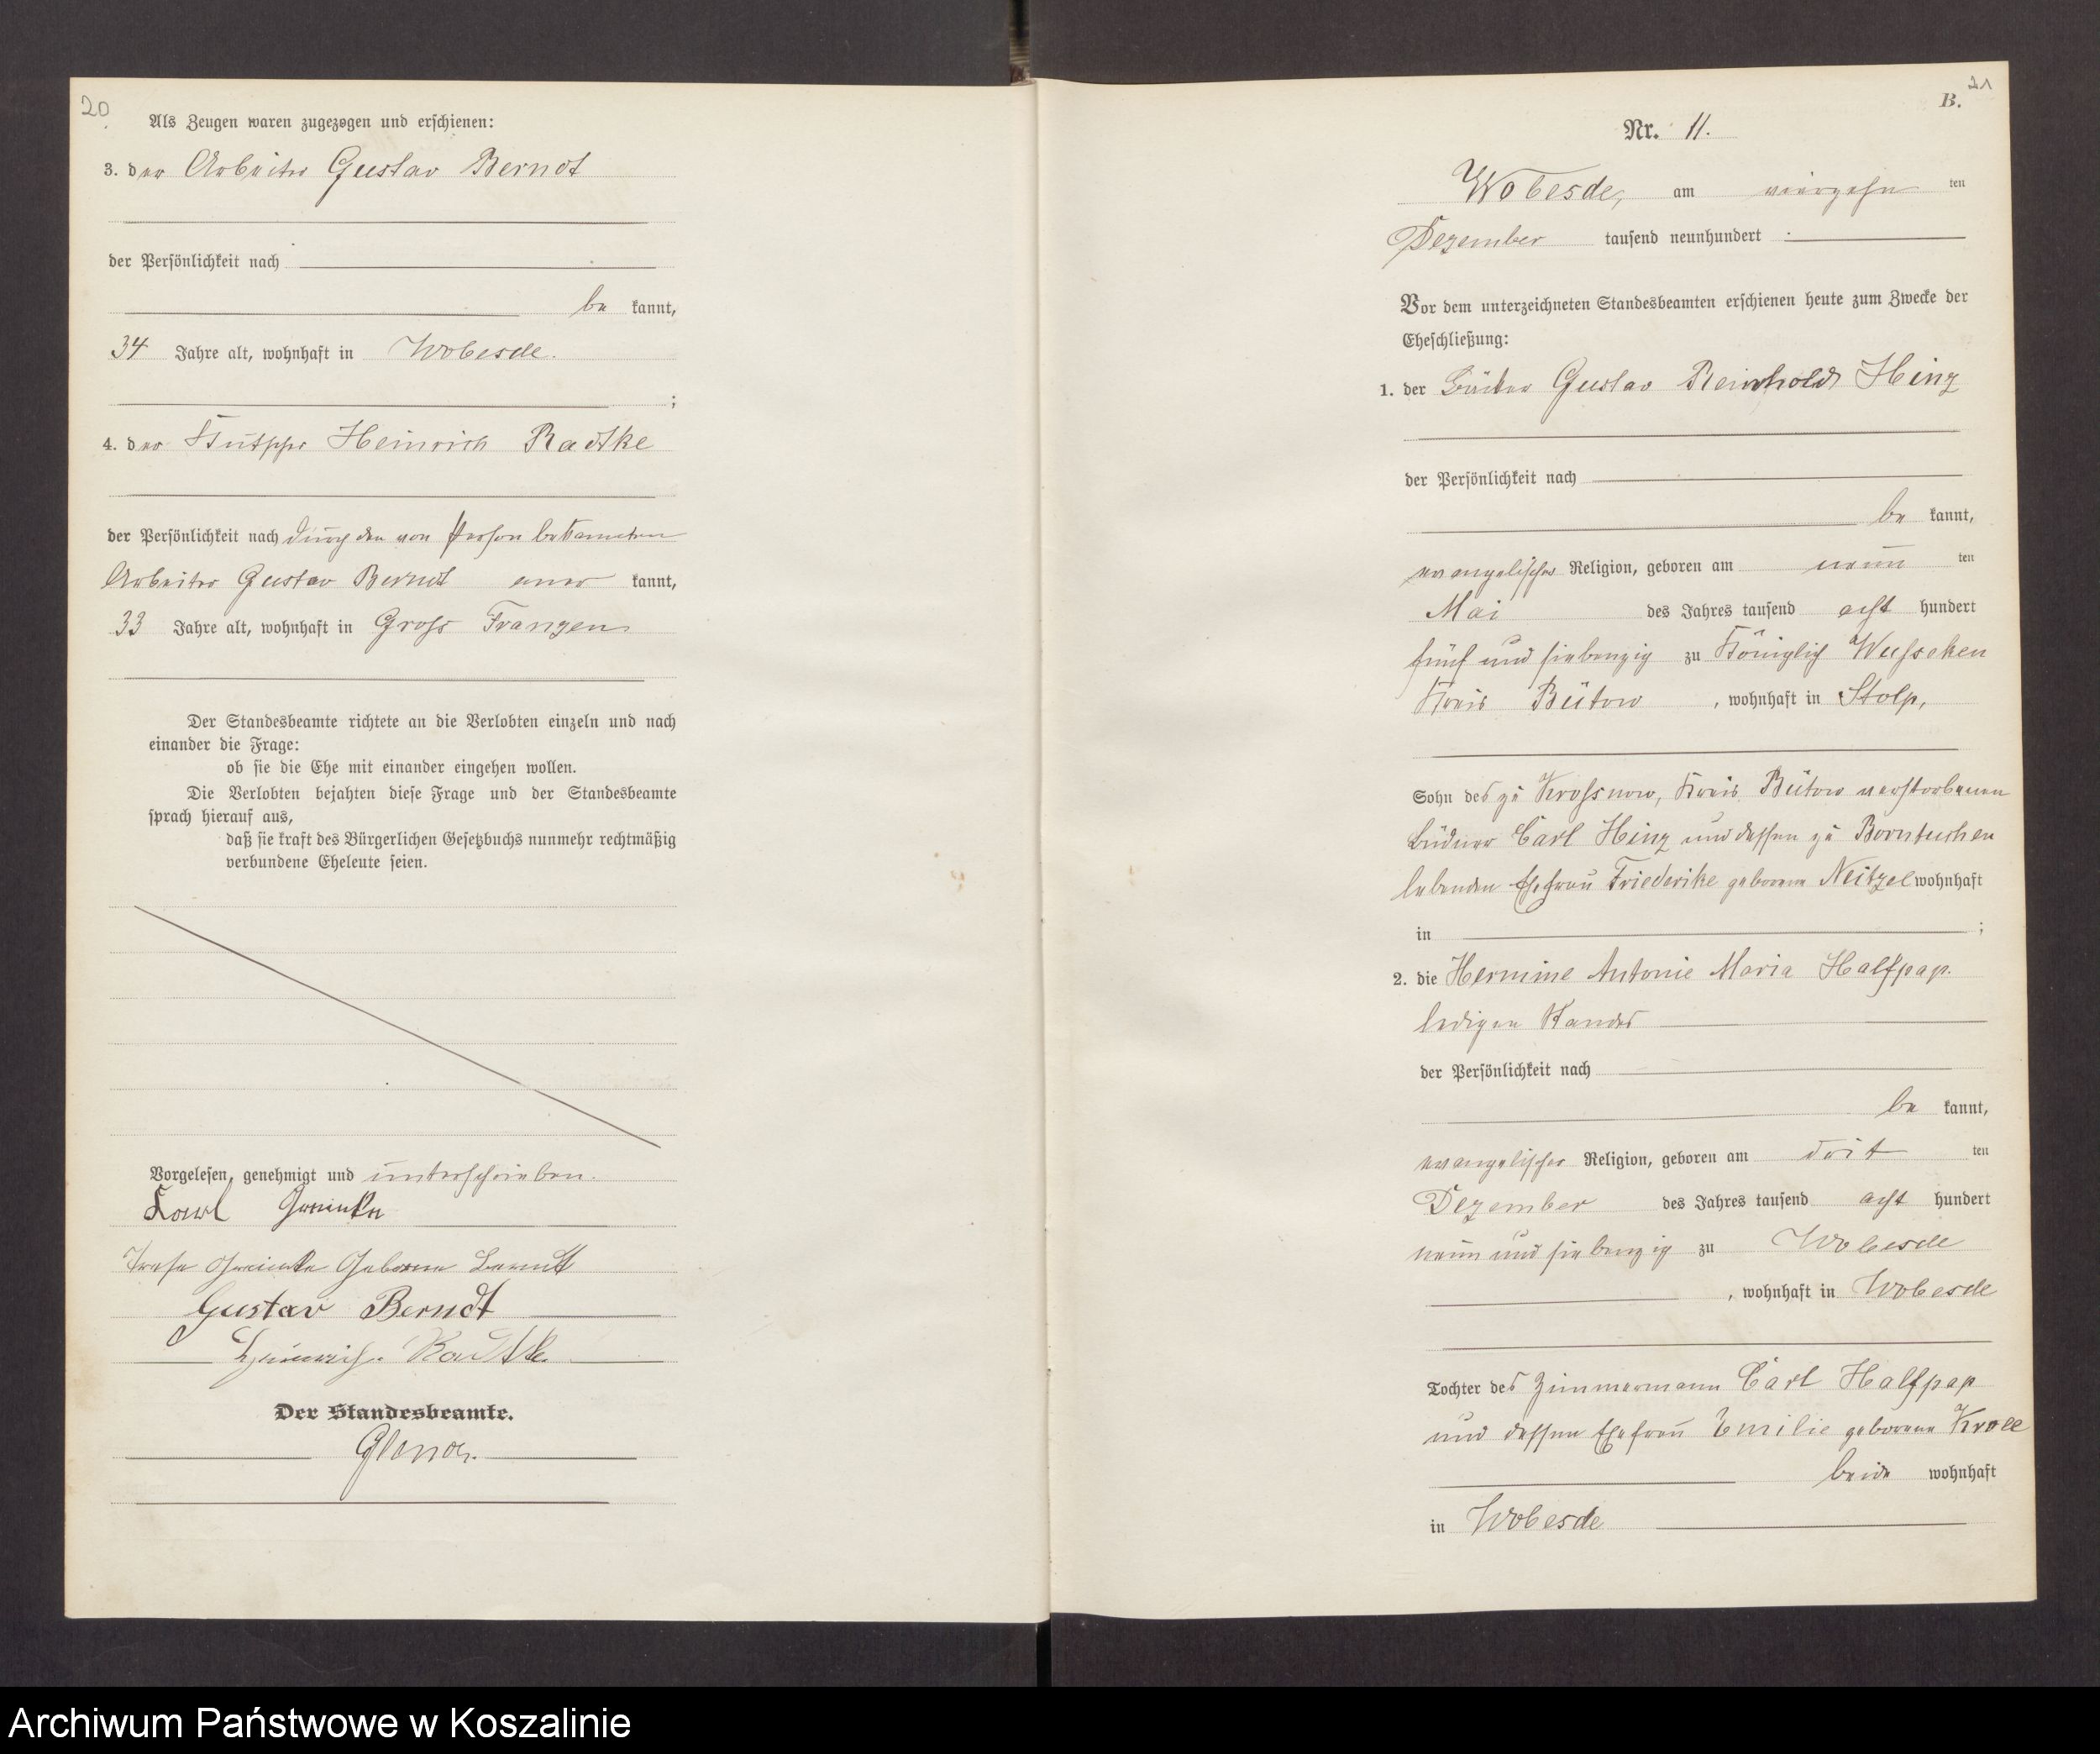 20
Als Zeugen waren zugezogen und erschienen:
3. der Arbeiter Gustav Berndt
der Persönlichkeit nach
be kannt,
34 Jahre alt, wohnhaft in Wobesde.
;
4. der Kutscher Heinrich Radtke
der Persönlichkeit nach durch den von Person bekannten
Arbeiter Gustav Berndt aner kannt,
33 Jahre alt, wohnhaft in Gross Brangen
Der Standesbeamte richtete an die Verlobten einzeln und nach
einander die Frage:
ob sie die Ehe mit einander eingehen wollen.
Die Verlobten bejahten diese Frage und der Standesbeamte
sprach hierauf aus,
daß sie kraft des Bürgerlichen Gesetzbuchs nunmehr rechtmäßig
verbundene Eheleute seien.
Vorgelesen, genehmigt und unterschrieben.
Karl
Geborne Berndt
Gustav Berndt
Heinrich Radtke
Der Standesbeamte.
21
B.
Nr. 11.
Wobesde, am vierzehn ten
Dezember tausend neunhundert
Vor dem unterzeichneten Standesbeamten erschienen heute zum Zwecke der
Eheschließung:
1. der Bäcker Gustav Reinhold Hinz
der Persönlichkeit nach
be kannt,
evangelischer Religion, geboren am neun ten
Mai des Jahres tausend acht hundert
fünf und siebenzig zu Königlich Wusseken
Kreis Bütow, wohnhaft in Stolp,
Sohn des zu Krossnow, Kreis Bütow verstorbenen
Büdner Carl Hinz und dessen zu Borntuchen
lebenden Ehefrau Friederike geborene Neitzel wohnhaft
in ;
2. die Hermine Antonie Maria Halfpap.
ledigen Standes
der Persönlichkeit nach
be kannt,
evangelischer Religion, geboren am drit ten
Dezember des Jahres tausend acht hundert
neun und siebenzig zu Wobesde
, wohnhaft in Wobesde
Tochter des Zimmermann Carl Halfpap
und dessen Ehefrau Emilie geborene Kroll
beide wohnhaft
in Wobesde
Archiwum Państwowe w Koszalinie